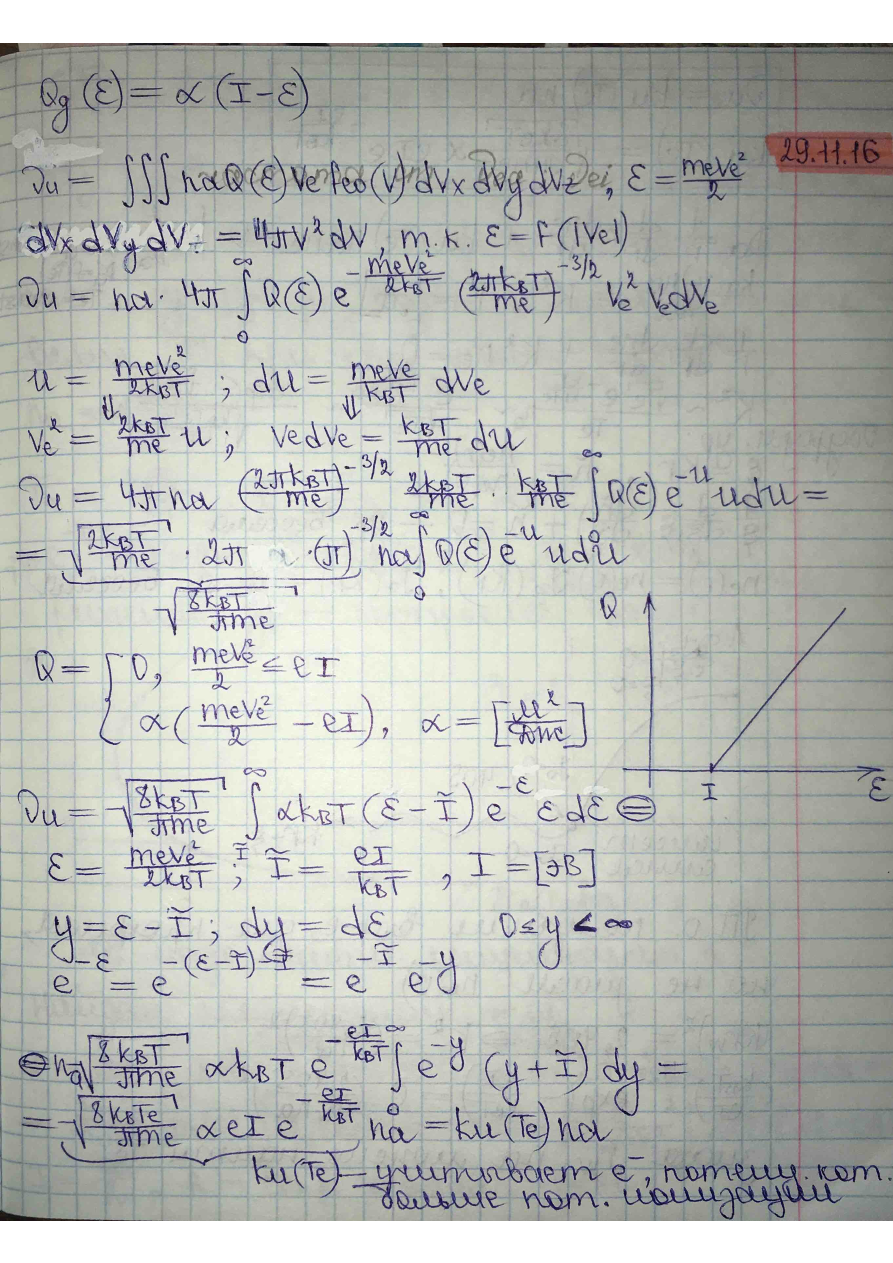 Qg (ε) = α (I − ε)
29.11.16
νu = ∭ naQ(ε)Ve feo(V) dVx dVy dVz, ε = meVe²/2
dVx dVy dVz = 4πV² dV, т.к. ε = f(|Ve|)
νu = na · 4π ∫₀^∞ Q(ε) e^(−meVe²/2kBT) (2πkBT/me)^(−3/2) Ve² VedVe
u = meVe²/2kBT ; du = meVe/kBT dVe
⇓ ⇓
Ve² = 2kBT/me u ; VedVe = kBT/me du
νu = 4π na (2πkBT/me)^(−3/2) 2kBT/me · kBT/me ∫₀^∞ Q(ε) e^(−u) u du =
= √(2kBT/me) · 2π · (π)^(−3/2) na ∫₀^∞ Q(ε) e^(−u) u du
√(8kBT/πme)
Q
Q = { 0, meVe²/2 ≤ eI
α(meVe²/2 − eI), α = [м²/Дж]
I ε
νu = √(8kBT/πme) ∫_Ĩ^∞ αkBT (ε − Ĩ) e^(−ε) ε dε ⊜
ε = meVe²/2kBT ; Ĩ = eI/kBT , I = [эВ]
y = ε − Ĩ ; dy = dε 0 ≤ y < ∞
e^(−ε) = e^(−(ε−Ĩ)−Ĩ) = e^(−Ĩ) e^(−y)
⊜ na √(8kBT/πme) αkBT e^(−eI/kBT) ∫₀^∞ e^(−y) (y + Ĩ) dy =
= √(8kBTe/πme) αeI e^(−eI/kBT) na = ku(Te) na
ku(Te) – учитывает e⁻, потенц. кот.
больше пот. ионизации